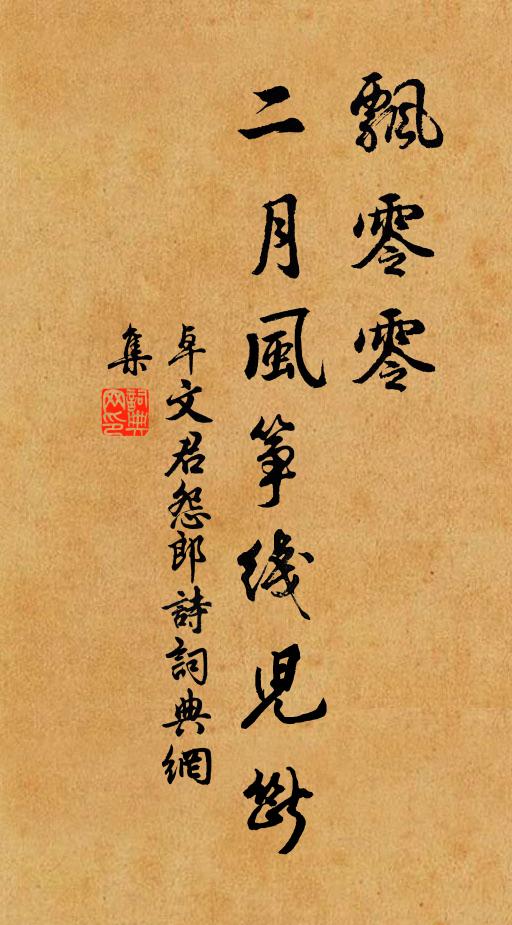 飄零零
二月風箏綫兒斷
卓文君怨郎詩詞典網
集
詞典
网印